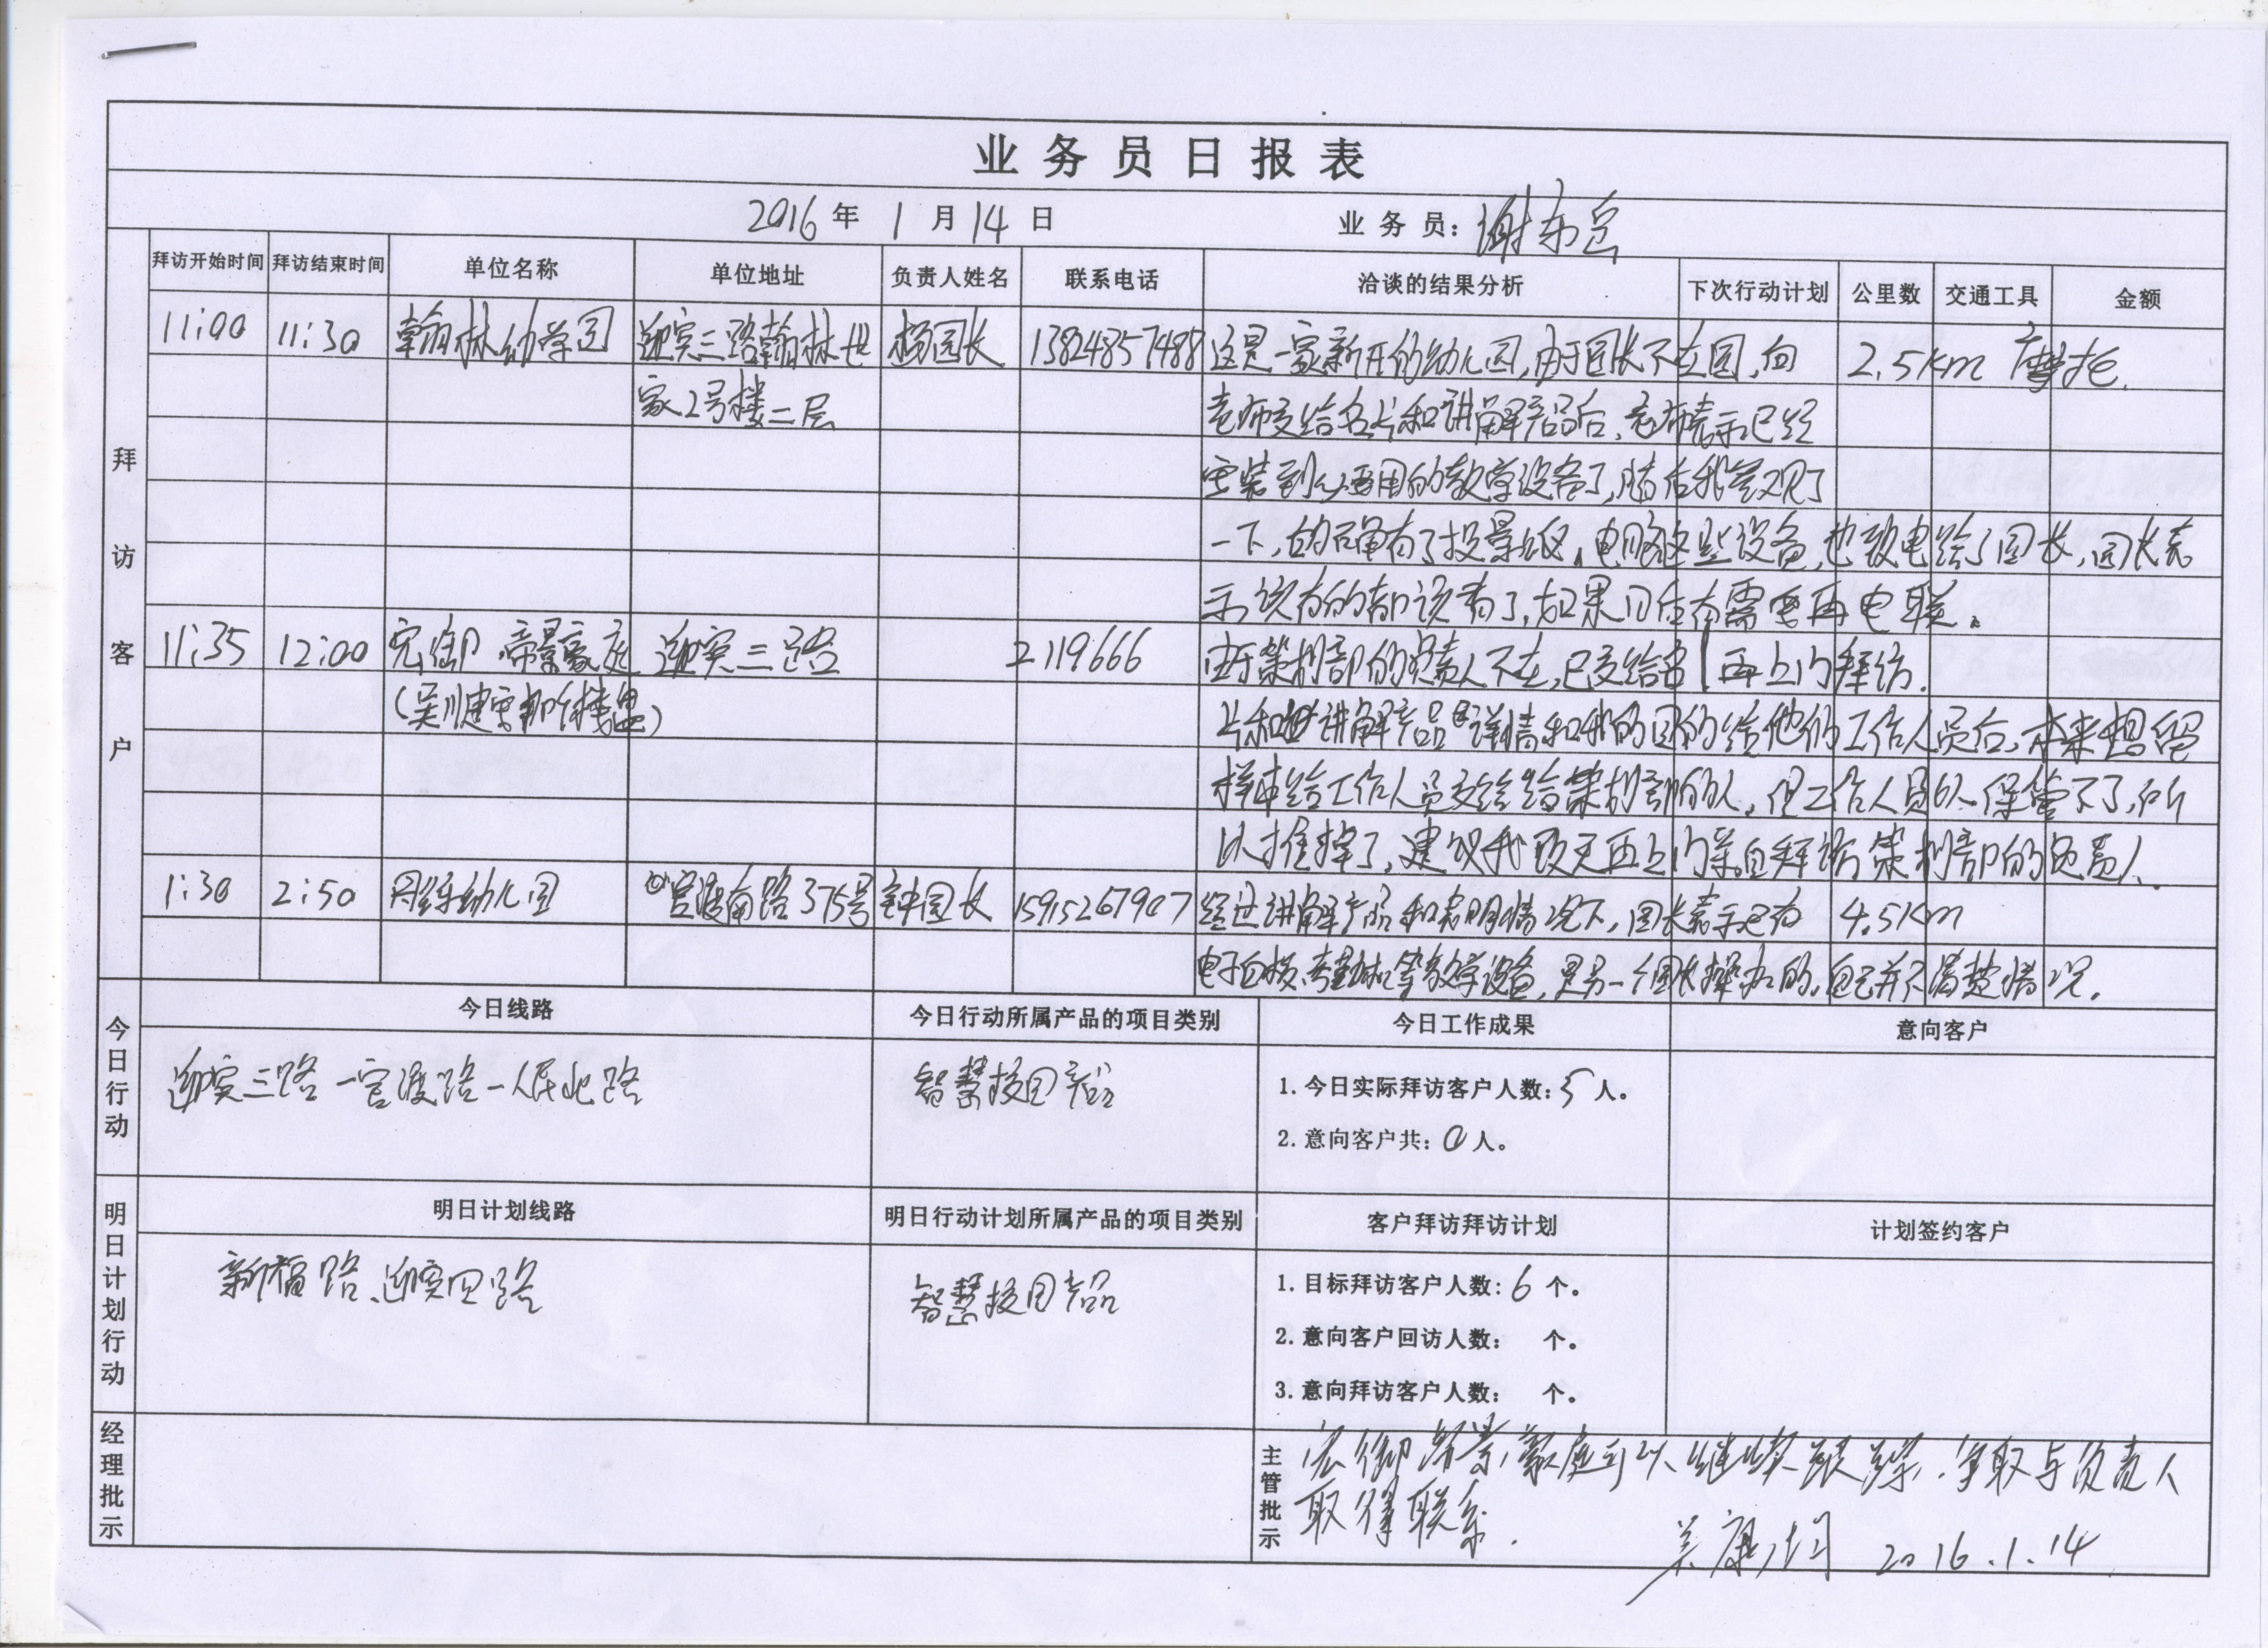 业务员日报表
2016年 1月14日 业务员:谢东
拜访客户
拜访开始时间 拜访结束时间 单位名称 单位地址 负责人姓名 联系电话 洽谈的结果分析 下次行动计划 公里数 交通工具 金额
11:00 11:30 翰林幼学园 迎宾三路翰林世 杨园长 13824857488 这是一家新开的幼儿园,由于园长不在园,向 2.5km 摩托
家2号楼二层 老师交给名片和讲解产品后,老师表示已经
安装到必要用的教学设备了,随后我参观了
一下,的确有了投影仪、电脑这些设备,也致电给了园长,园长表
示该有的都该有了,如果日后有需要再电联。
11:35 12:00 宏御 帝景豪庭 迎宾三路 2119666 由于策划部的负责人不在,已交给名 再上门拜访.
(吴川建 楼盘) 片和讲解产品详情和我的目的给他们工作人员后,本来想留
样本给工作人员交给给策划部的人,但工作人员 保管不了,所
以推掉了,建议我改天再上门亲自拜访策划部的负责人.
1:30 2:50 幼儿园 官渡南路375号 钟园长 15915267907 经过讲解产品和表明情况下,园长表示已有 4.5km
电子白板、考勤机等教学设备,是另一个园长操办的,自己并不清楚情况.
今日行动
今日线路 今日行动所属产品的项目类别 今日工作成果 意向客户
迎宾三路-官渡路-人民北路 智慧校园产品 1.今日实际拜访客户人数:5人。
2.意向客户共:0人。
明日计划行动
明日计划线路 明日行动计划所属产品的项目类别 客户拜访拜访计划 计划签约客户
新福路、迎宾四路 智慧校园产品 1.目标拜访客户人数:6个。
2.意向客户回访人数: 个。
3.意向拜访客户人数: 个。
经理批示 主管批示 宏御帝景豪庭可以继续跟踪.争取与负责人
取得联系.
吴康 2016.1.14